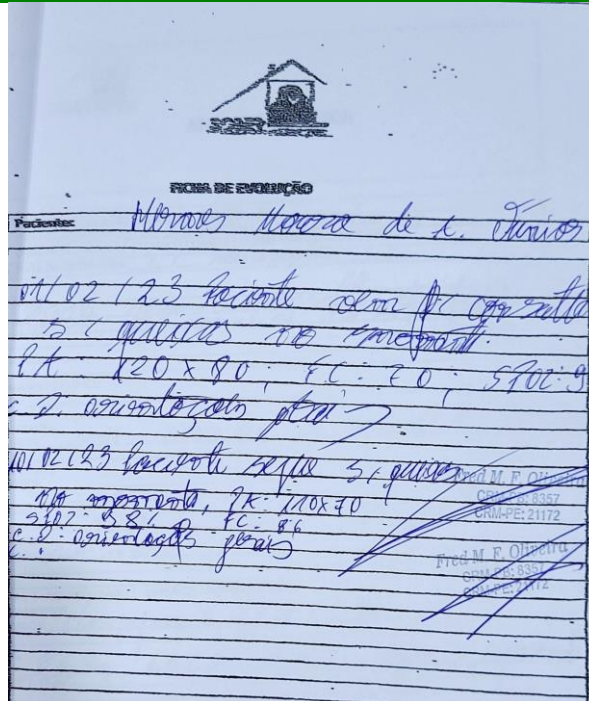 FICHA DE EVOLUÇÃO
Paciente: Moura de A. Júnior
01/02/23 Paciente vem p/ consulta
s/ queixas no momento.
PA: 120 x 80; FC: 70; SPO2: 9
c.d. orientações gerais
10/02/23 Paciente segue s/ queixas
no momento, PA: 110x70
SPO2: 98% FC: 86
c.d: orientações gerais
Fred M. F. Oliveira
CRM-PB: 8357
CRM-PE: 21172
Fred M. F. Oliveira
CRM-PB: 8357
CRM-PE: 21172